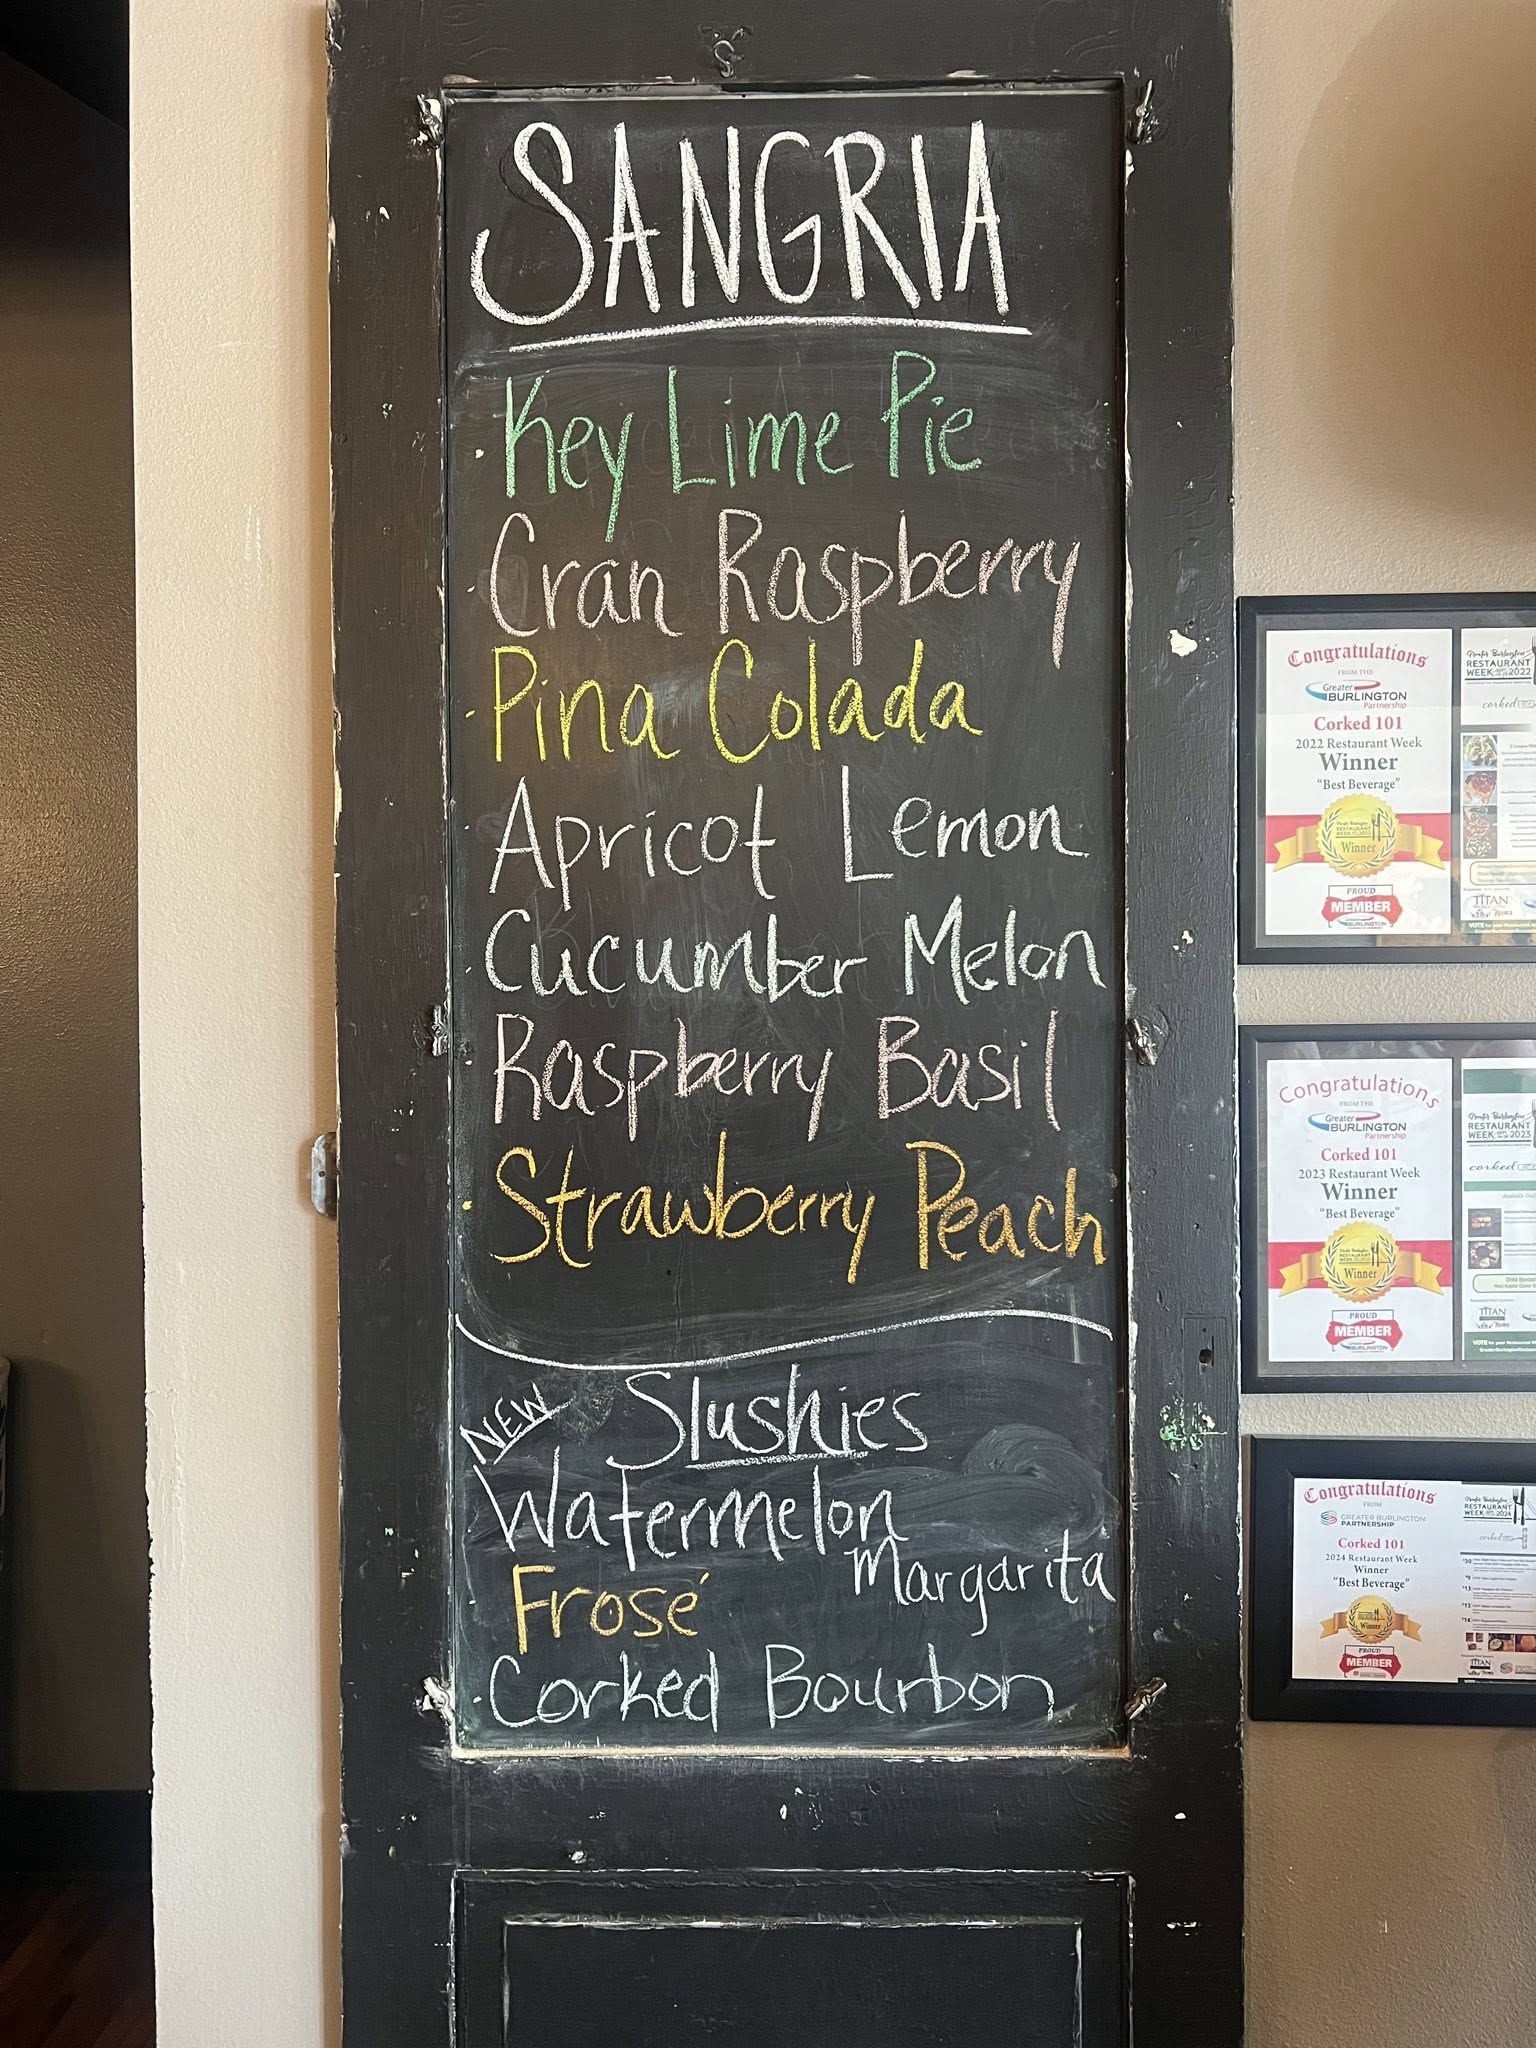 SANGRIA
· Key Lime Pie
· Cran Raspberry
· Pina Colada
· Apricot Lemon
· Cucumber Melon
· Raspberry Basil
· Strawberry Peach
NEW Slushies
Watermelon
Margarita
Frosé
· Corked Bourbon
Congratulations
FROM THE
Greater
BURLINGTON
Partnership
Corked 101
2022 Restaurant Week
Winner
"Best Beverage"
Winner
PROUD
MEMBER
BURLINGTON
Greater Burlington
RESTAURANT
WEEK 2022
corked
TITAN
Congratulations
FROM THE
Greater
BURLINGTON
Partnership
Corked 101
2023 Restaurant Week
Winner
"Best Beverage"
Winner
PROUD
MEMBER
BURLINGTON
Greater Burlington
RESTAURANT
WEEK 2023
corked
TITAN
Congratulations
FROM
GREATER BURLINGTON
PARTNERSHIP
Corked 101
2024 Restaurant Week
Winner
"Best Beverage"
Winner
PROUD
MEMBER
BURLINGTON
RESTAURANT
WEEK 2024
corked
TITAN